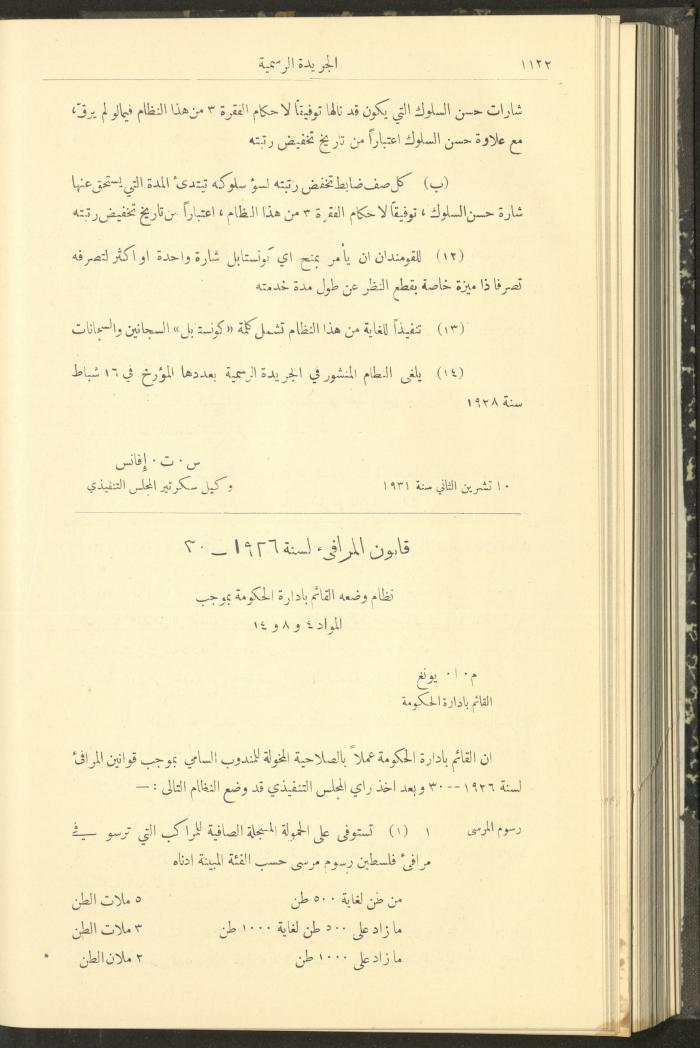 ١١٢٢ الجريدة الرسمية
شارات حسن السلوك التي يكون قد نالها توفيقاً لاحكام الفقرة ٣ من هذا النظام فيمالو لم يرقَّ،
مع علاوة حسن السلوك اعتباراً من تاريخ تخفيض رتبته
(ب) كل صف ضابط تخفض رتبته لسوء سلوكه تبتدئ المدة التي يستحق عنها
شارة حسن السلوك ، توفيقاً لاحكام الفقرة ٣ من هذا النظام ، اعتباراً من تاريخ تخفيض رتبته
(١٢) للقومندان ان يأمر بمنح اي كونستابل شارة واحدة او اكثر لتصرفه
تصرفا ذا ميزة خاصة بقطع النظر عن طول مدة خدمته
(١٣) تنفيذاً للغاية من هذا النظام تشمل كلمة «كونستابل» السجانين والسجانات
(١٤) يلغى النظام المنشور في الجريدة الرسمية بعددها المؤرخ في ١٦ شباط
سنة ١٩٢٨
س ٠ ت ٠ إفانس
١٠ تشرين الثاني سنة ١٩٣١ وكيل سكرتير المجلس التنفيذي
قانون المرافىء لسنة ١٩٢٦ – ٣٠
نظام وضعه القائم بادارة الحكومة بموجب
المواد ٤ و ٨ و ١٤
م ٠ ا ٠ يونغ
القائم بادارة الحكومة
ان القائم بادارة الحكومة عملاً بالصلاحية المخولة للمندوب السامي بموجب قوانين المرافئ
لسنة ١٩٢٦ -- ٣٠ وبعد اخذ راي المجلس التنفيذي قد وضع النظام التالى : —
رسوم المرسى ١ (١) تستوفى على الحمولة المسجلة الصافية للمراكب التي ترسو في
مرافئ فلسطين رسوم مرسى حسب الفئة المبينة ادناه
من طن لغاية ٥٠٠ طن ٥ ملات الطن
ما زاد على ٥٠٠ طن لغاية ١٠٠٠ طن ٣ ملات الطن
ما زاد على ١٠٠٠ طن ٢ ملان الطن